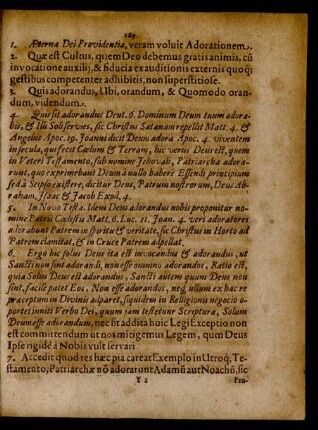 169.
1. Æterna Dei Providentia, veram voluit Adorationem.
2. Quæ est Cultus, quem Deo debemus gratis animis, cũ
invocatione auxilij, & fiducia exauditionis externis quoq;
gestibus competenter adhibitis, non superstitiose.
3. Quis adorandus, Ubi, orandum, & Quomodo oran-
dum, videndum.
4. Quis sit adorandus Deut. 6. Dominum Deum tuum adora-
bis, & Illi Soli servies, sic Christus Satanam repellit Matt. 4. &
Angelus Apoc. 19. Joanni dicit Deum adora Apoc. 4. viventem
in secula, qui fecit Cœlum & Terram, hic verus Deus est, quem
in Veteri Testamento, sub nomine Jehovah, Patriarchæ adora-
runt, quo exprimebant Deum à nullo habere Essendi principium
sed à Seipso existere, dicitur Deus, Patrum nostrorum, Deus Ab-
raham, Isaac & Jacob Exod. 4.
5. In Novo Testa. Idem Deus adorandus nobis proponitur no-
mine Patris Cœlestis Matt. 6. Luc. 21. Joan. 4. veri adoratores
adorabunt Patrem in spiritu & veritate, sic Christus in Horto ad
Patrem clamitat, & in Cruce Patrem adpellat.
6. Ergo hic solus Deus ita est invocandus & adorandus, ut
Sancti non sint adorandi, non esse omnino adorandos; Ratio est,
quia Solus Deus est adorandus, Sancti autem quum Deus non
sint, facilè patet Eos, Non esse adorandos, neq; ullum ex hac re
præceptum in Divinis adparet, siquidem in Religionis negocio o-
portet inniti Verbo Dei, quum jam testetur Scriptura, Solum
Deum esse adorandum, nec sit addita huic Legi Exceptio non
est committendum ut nos mitigemus Legem, quam Deus
Ipse rigidè à Nobis vult servari.
7. Accedit quod res hæc pia careat Exemplo in Utroq; Te-
stamento, Patriarchæ nõ adorarunt Adamũ aut Noachũ, sic
Y 2 Pro-